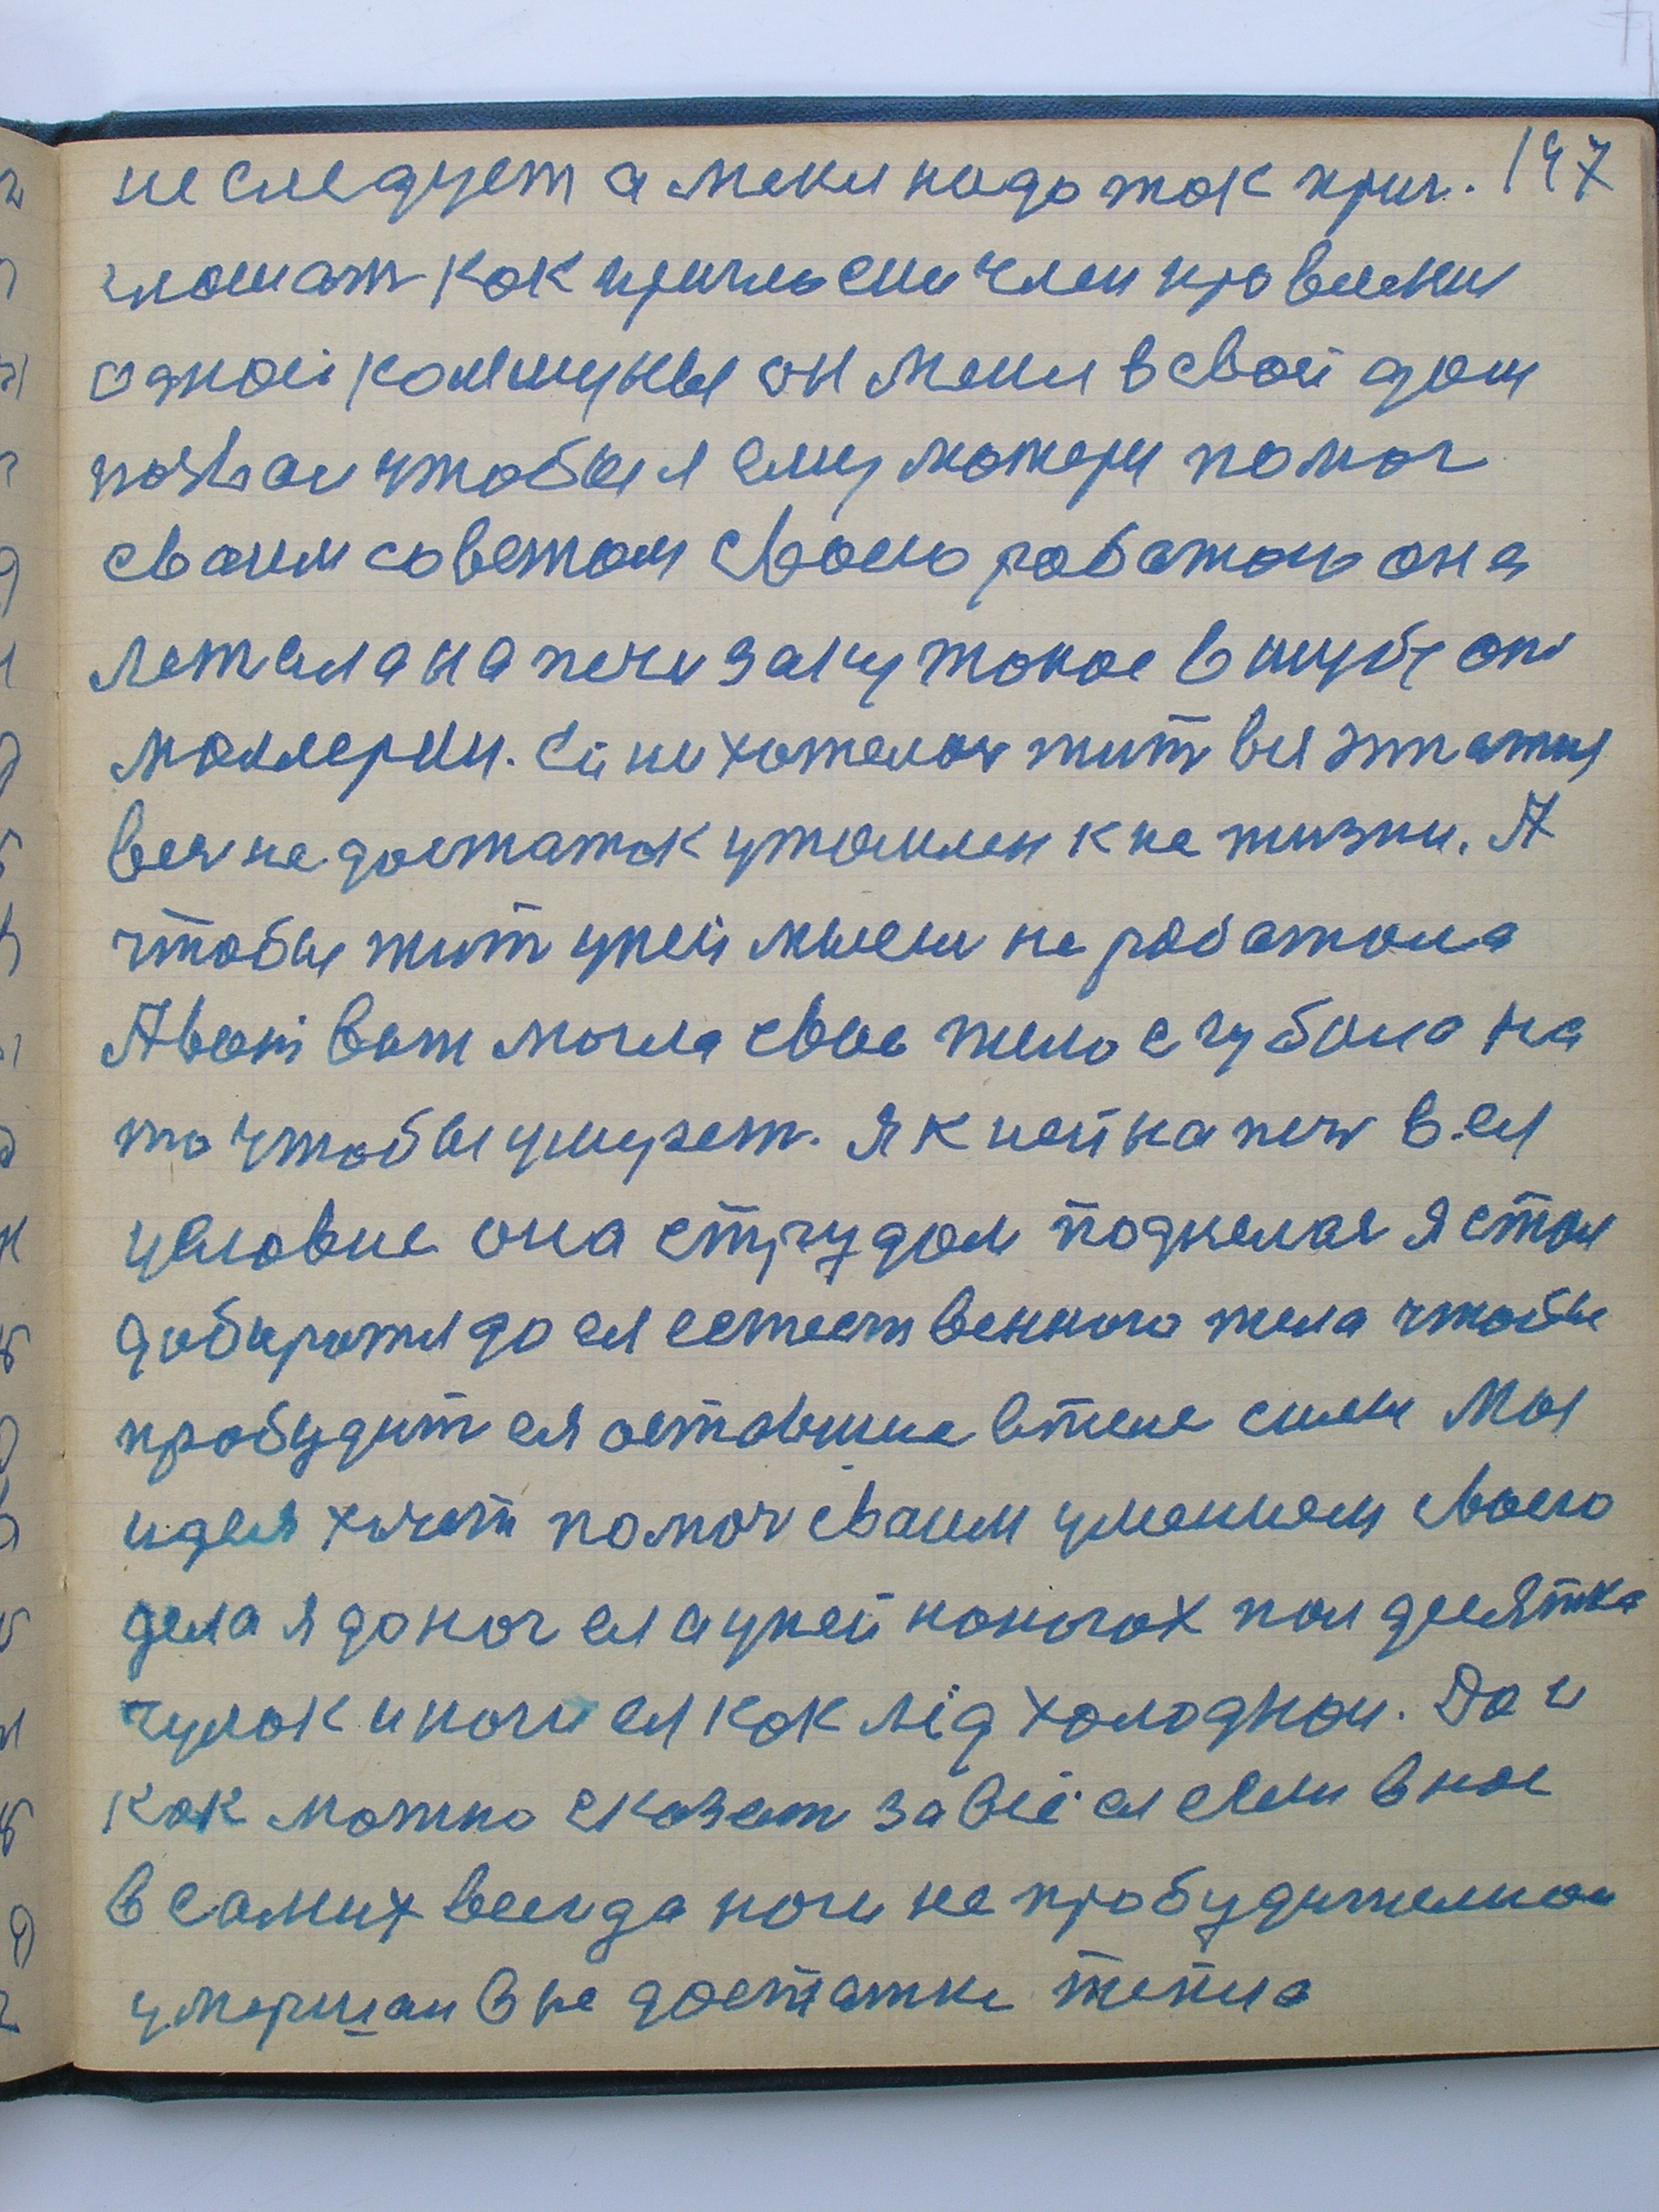 не следует а меня надо так приг. 197
глошат как приглосил член провлени
одной коммуны он меня в свой дом
позвал чтобы я ему матери помог
своим советом своею работою она
лежала на печи закутоное в шубе от
моллерии. Ей не хотелось жит вся эта
вся не достаток утомлен к не жизни. А
чтобы жит у ней мысли не работола
А вот вот могла свое тело сгубила на
то чтобы умерет. Я к ней на печ в ея
условие она струдом поднелас я стал
добиратя до ея естественного тела чтобы
пробудит ея оставшие втеле силы Моя
идея хочет помоч своим умением своего
дела я до ног ея а у ней на ногах пол десятка
чулок и ноги ея как лёд холодной. Да и
какможно сказат за всё ея если в нае
в самих всегда ноги не пробудителнои
умершаи в не достатке тепла